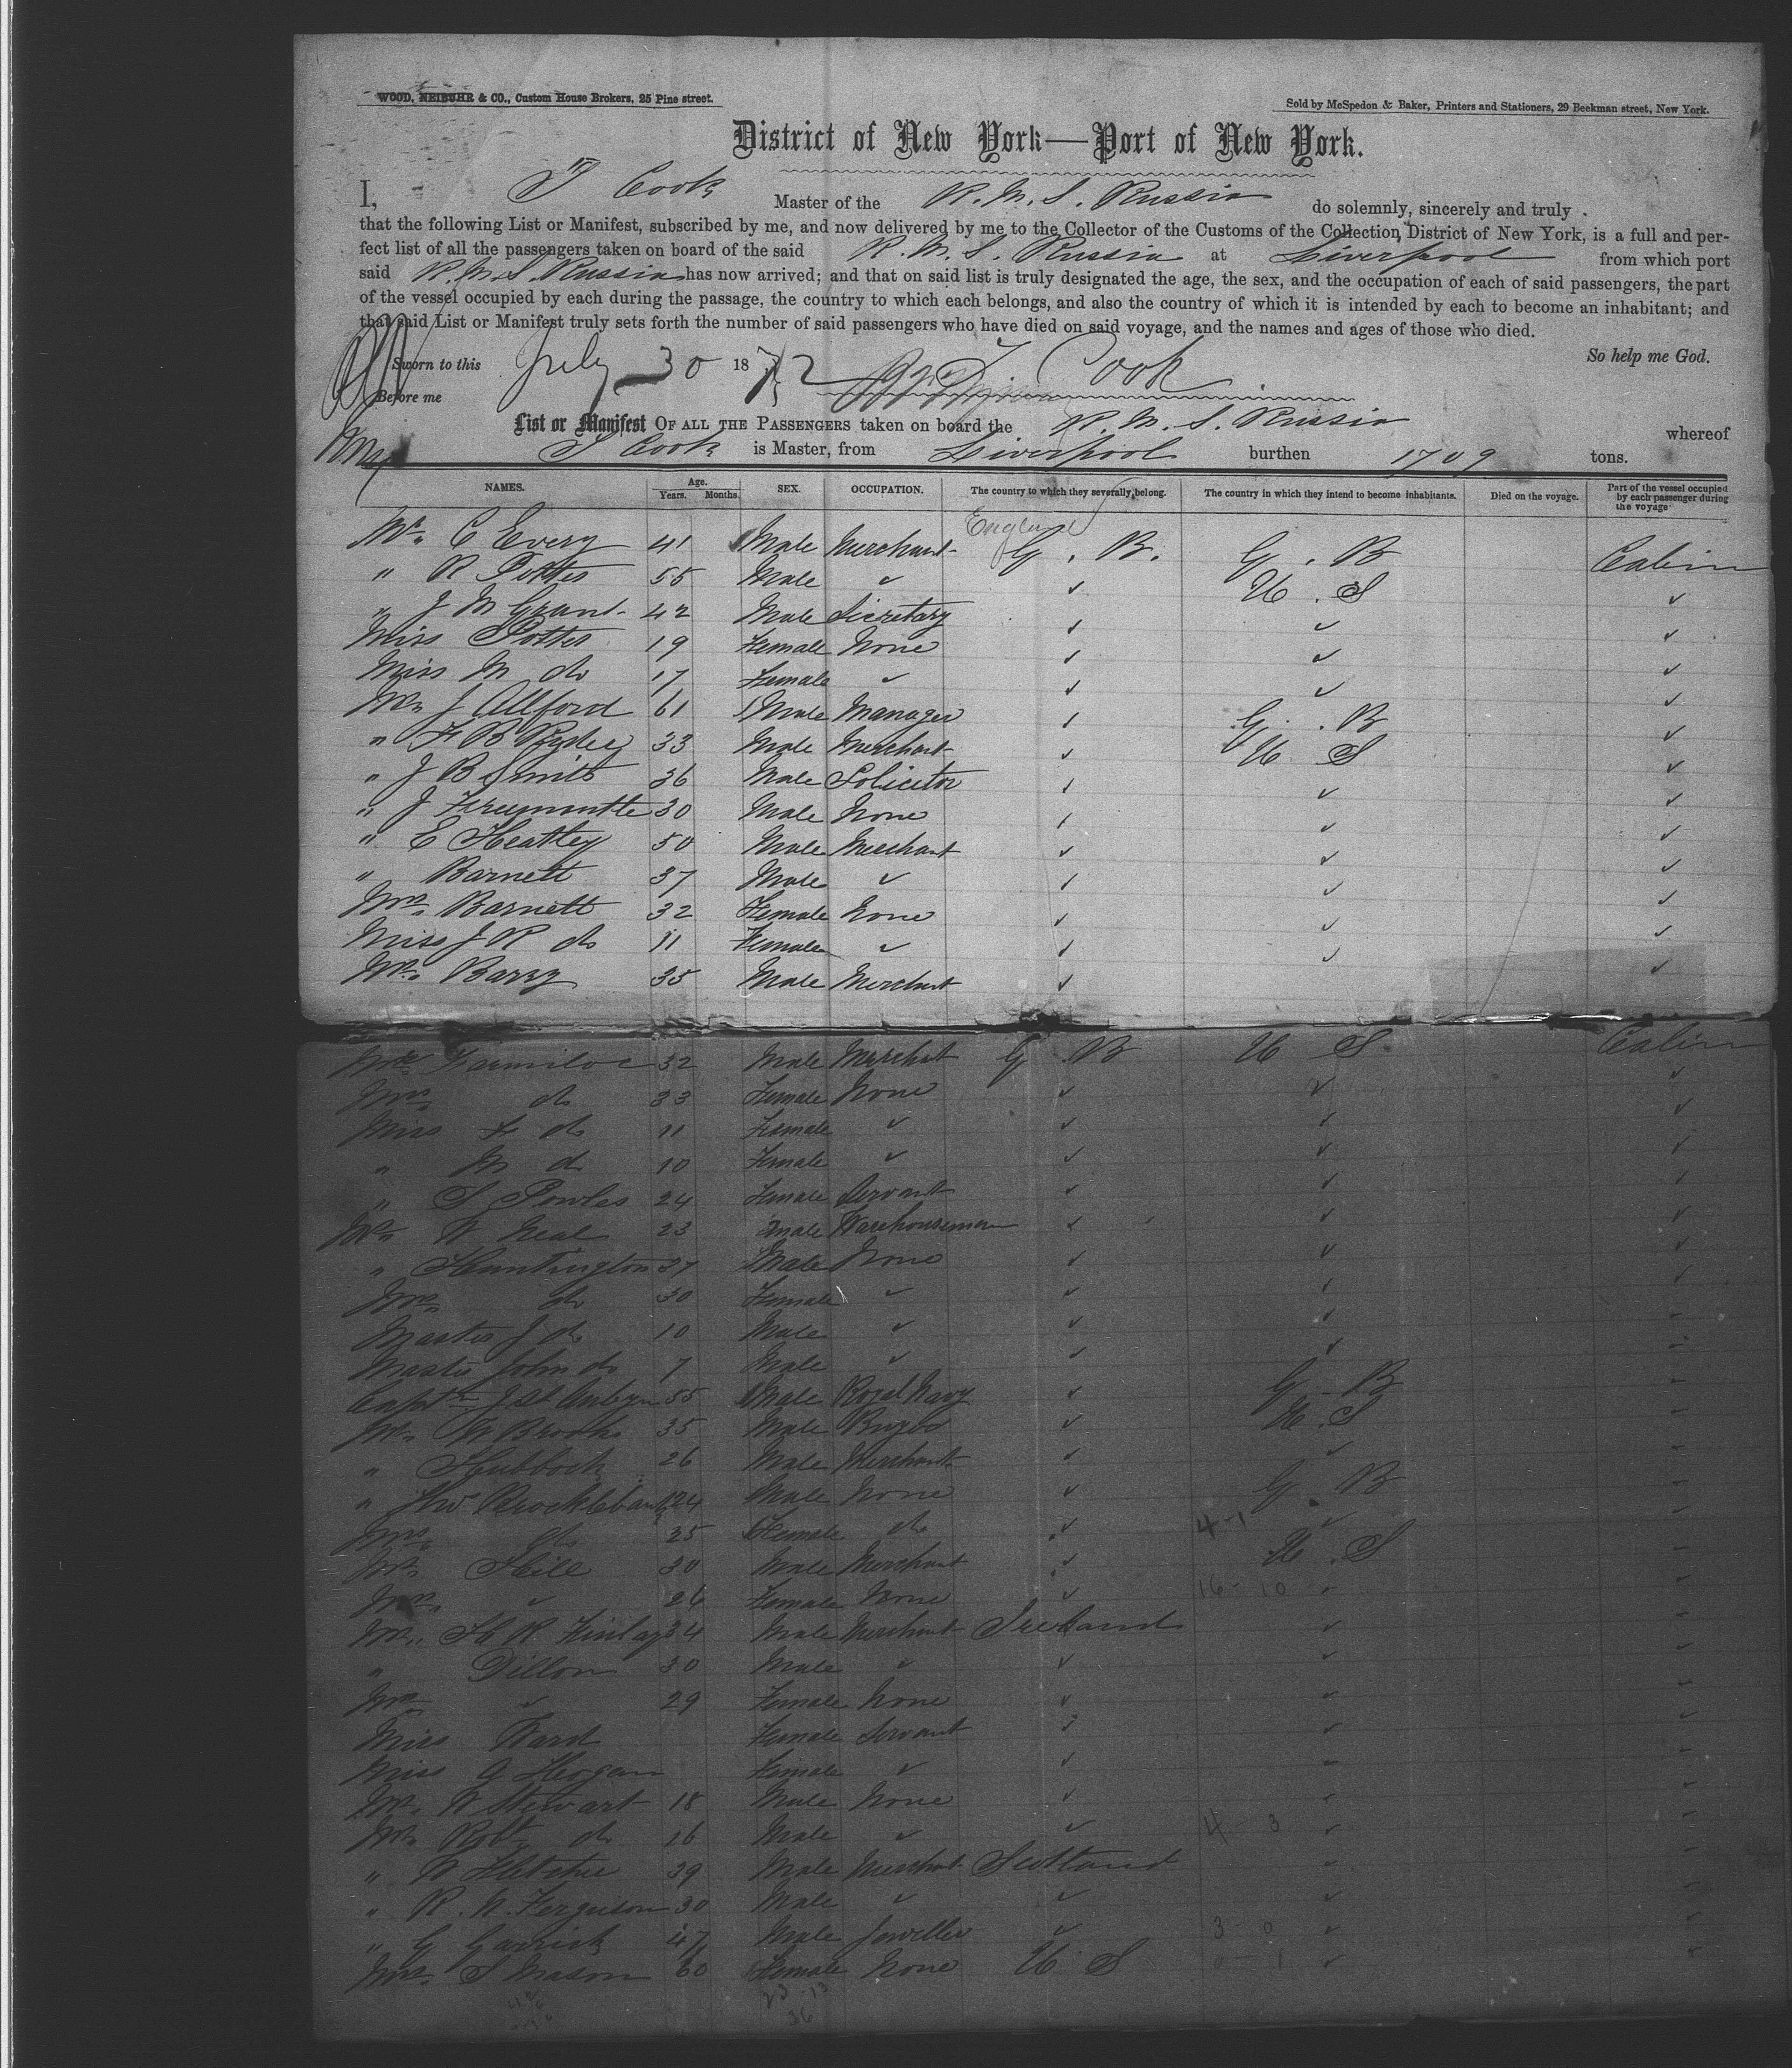 WOOD, NEIBUHR & CO., Custom House Brokers, 25 Pine street.
Sold by McSpedon & Baker, Printers and Stationers, 29 Beekman street, New York.
District of New York—Port of New York.
I, T Cook Master of the R. M. S. Russia do solemnly, sincerely and truly
that the following List or Manifest, subscribed by me, and now delivered by me to the Collector of the Customs of the Collection District of New York, is a full and per-
fect list of all the passengers taken on board of the said R. M. S. Russia at Liverpool from which port
said R. M. S. Russia has now arrived; and that on said list is truly designated the age, the sex, and the occupation of each of said passengers, the part
of the vessel occupied by each during the passage, the country to which each belongs, and also the country of which it is intended by each to become an inhabitant; and
that said List or Manifest truly sets forth the number of said passengers who have died on said voyage, and the names and ages of those who died.
Sworn to this July 30 1872 Cook So help me God.
Before me
List or Manifest OF ALL THE PASSENGERS taken on board the R. M. S. Russia whereof
T Cook is Master, from Liverpool burthen 1709 tons.
NAMES. Age. Years. Months. SEX. OCCUPATION. The country to which they severally belong. The country in which they intend to become inhabitants. Died on the voyage. Part of the vessel occupied by each passenger during the voyage
England
Mr. C Every 41 Male Merchant G. B. G. B Cabin
" R Potter 55 Male " ✓ U. S ✓
" J M Grant 42 Male Secretary ✓ ✓ ✓
Miss Potter 19 Female None ✓ ✓ ✓
Miss M do 17 Female " ✓ ✓ ✓
Mr. J Allford 61 Male Manager ✓ G. B ✓
" F B 33 Male Merchant ✓ U S ✓
" J B Smith 36 Male Solicitor ✓ ✓ ✓
" J Freemantle 30 Male None ✓ ✓ ✓
" E Heatley 50 Male Merchant ✓ ✓ ✓
" Barnett 37 Male " ✓ ✓ ✓
Mrs. Barnett 32 Female None ✓ ✓ ✓
Miss J R do 11 Female " ✓ ✓ ✓
Mr. Barry 35 Male Merchant ✓ ✓
Mr Farmiloe 32 Male Merchant G. B U S Cabin
Mrs. do 33 Female None ✓ ✓ ✓
Miss F do 11 Female " ✓ ✓ ✓
" M do 10 Female " ✓ ✓ ✓
" S Powles 24 Female Servant ✓ ✓ ✓
Mr. W Neal 23 Male Warehouseman ✓ ✓ ✓
" Huntington 37 Male None ✓ ✓ ✓
Mrs. do 30 Female " ✓ ✓ ✓
Master J do 10 Male " ✓ ✓
Master John do 7 Male " ✓ ✓
Captn J St Aubyn 55 Male Royal Navy ✓ G. B
Mr. W Brooks 35 Male ✓ U. S
" Hubbock 26 Male Merchant ✓ ✓
" Thos Brocklebank 24 Male None ✓ G B
Mrs. do 25 Female do ✓ 4-1 ✓
Mr. Hill 30 Male Merchant ✓ U. S
Mrs. " 26 Female None ✓ 16-10 ✓
Mr. H R Finlay 34 Male Merchant Ireland ✓
" Dillon 30 Male " ✓ ✓
Mrs " 29 Female None ✓ ✓
Miss Ward Female Servant ✓ ✓
Miss A Hogan Female " ✓ ✓
Mr. W Stewart 18 Male None ✓ ✓
Mr. Robt do 16 Male " ✓ 4-3 ✓
" W Fletcher 39 Male Merchant Scotland ✓
" R. N. Ferguson 30 Male " ✓ ✓
" G Garrick 47 Male Jeweller ✓ 3-0 ✓
Mrs. S Mason 60 Female None U S 0-1 ✓
23-13
36